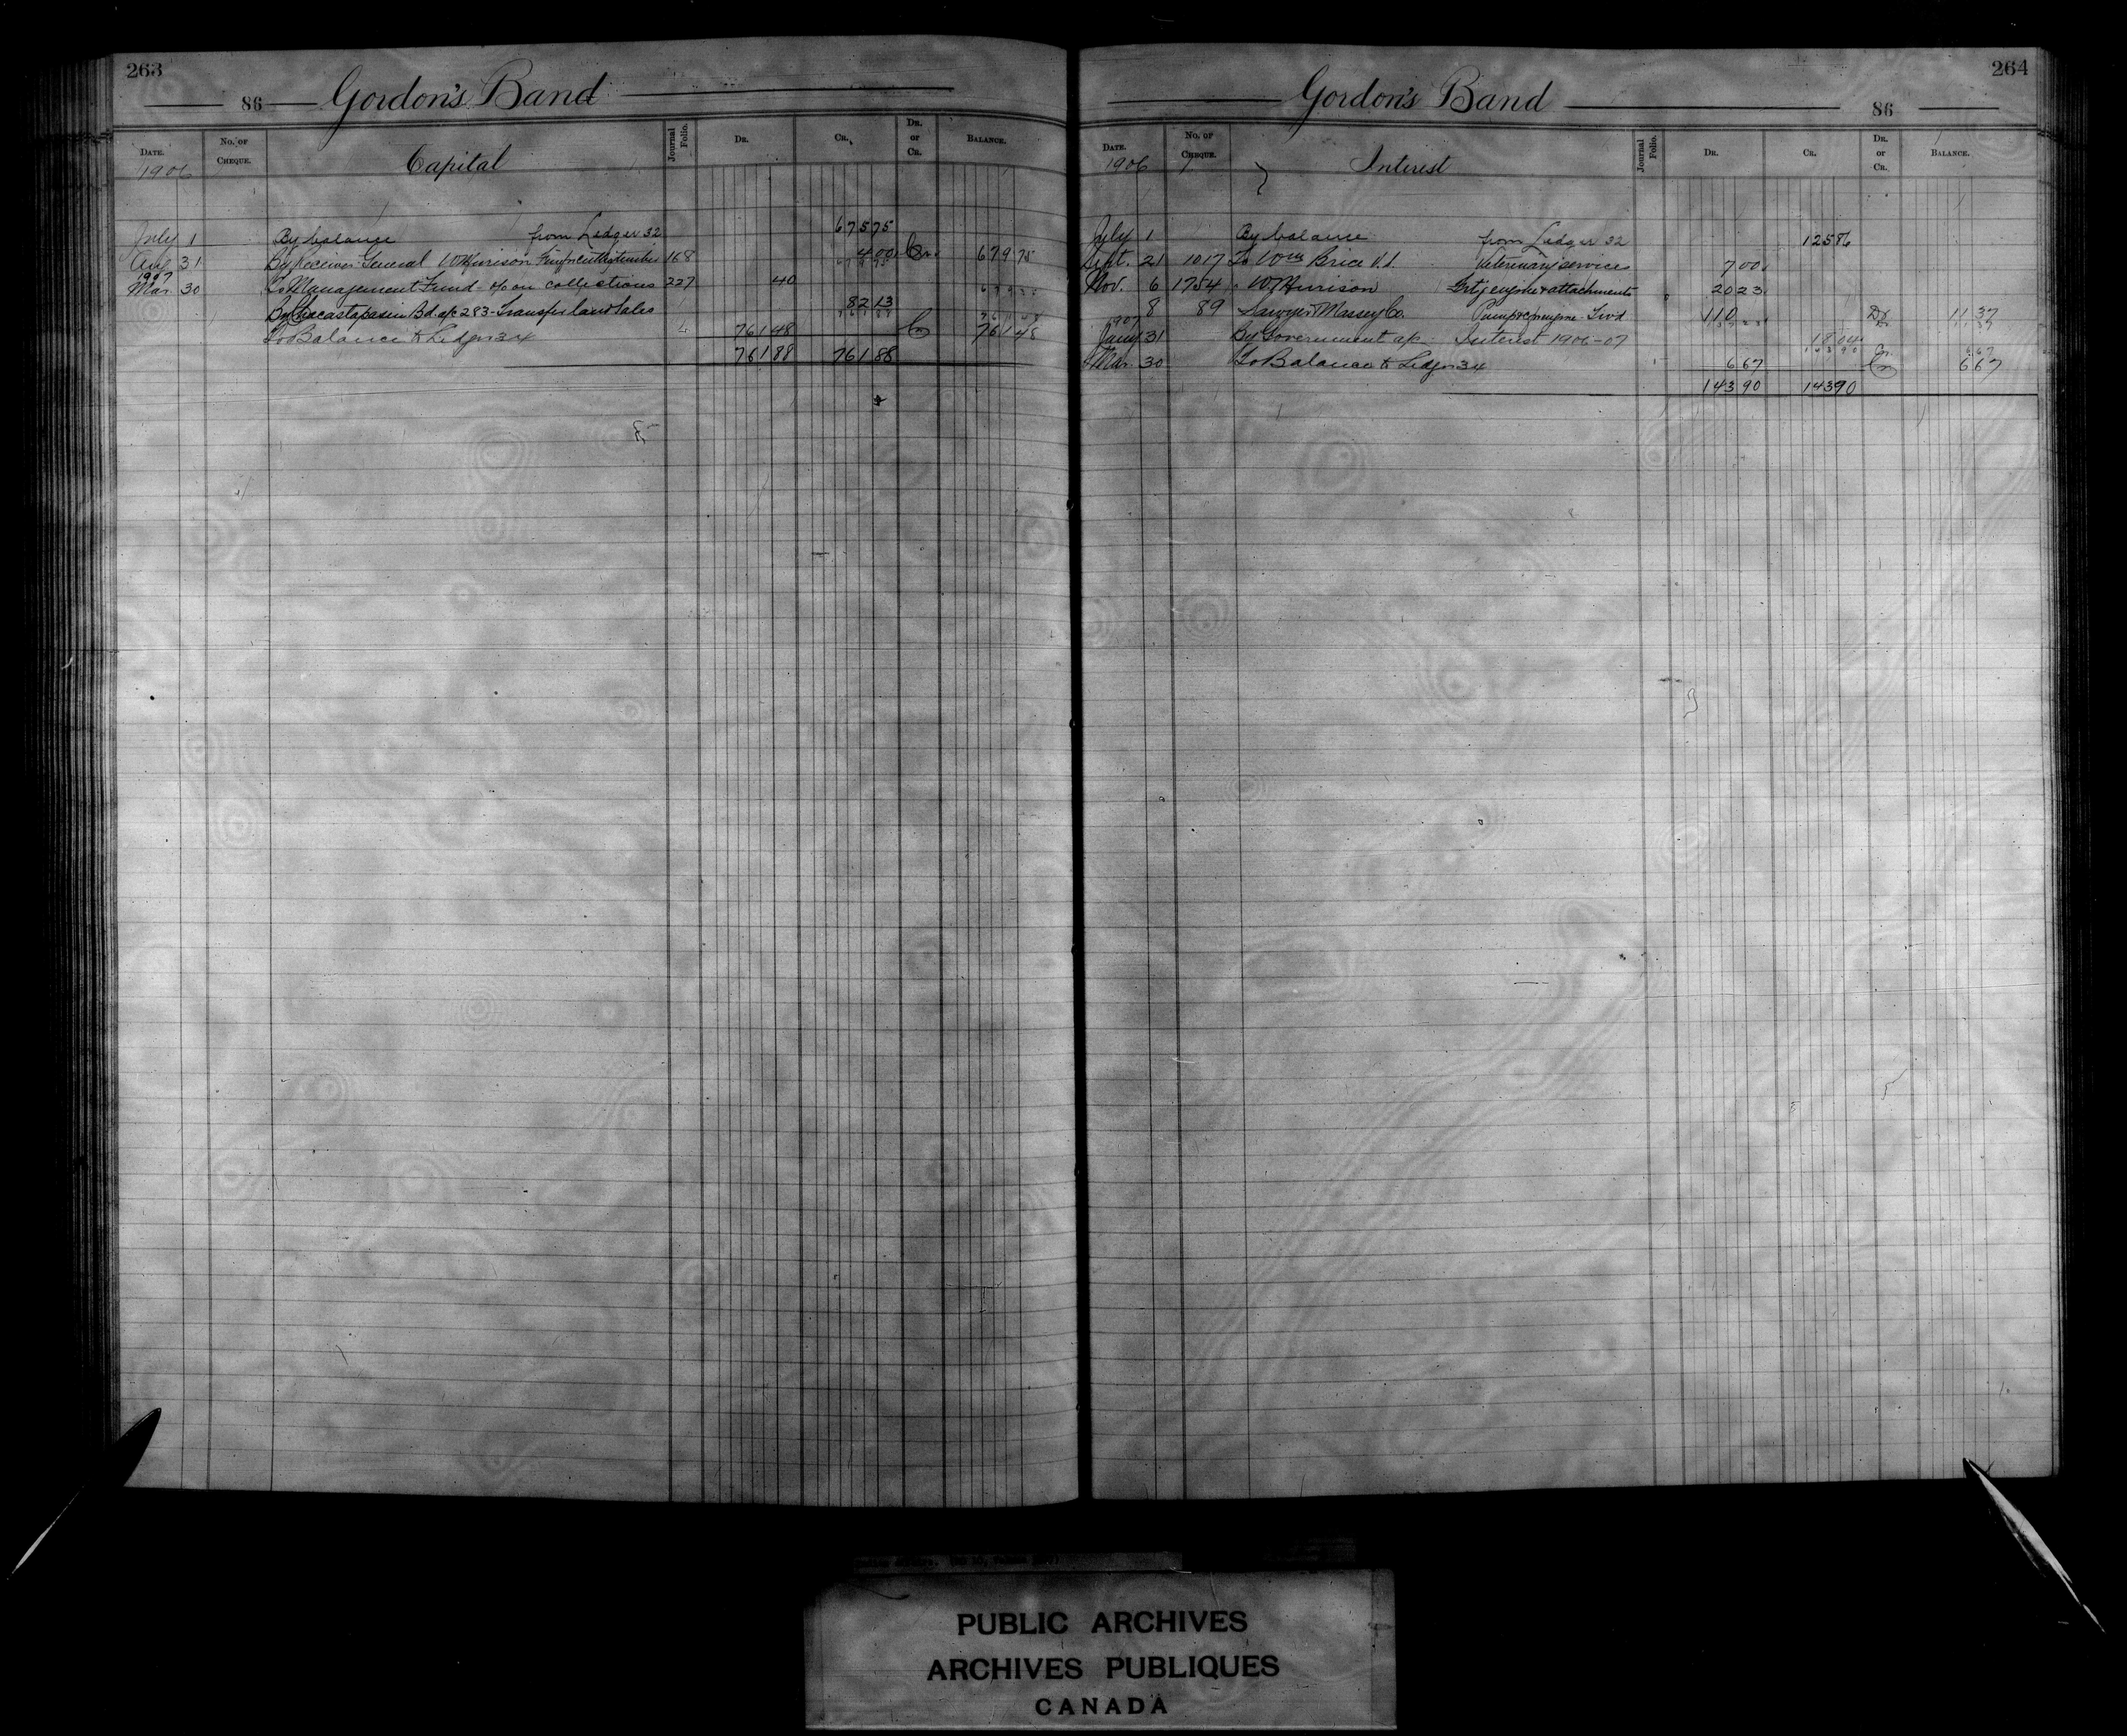 263
86 Gordon's Band
DATE. No. OF CHEQUE. Capital Journal Folio. DR. CR. DR. or CR. BALANCE.
1906
July 1 By balance from Ledger 32 675 75
Aug 31 By Receiver General W Murison 168 4 00 Cr. 679 75
1907
Mar. 30 To Management Fund o/o on collections 227 40
By Chacastapasin Bd. a/c 283 - Transfer land sales 82 13
To Balance to Ledger 34 761 48 Cr 761 48
761 88 761 88
264
Gordon's Band 86
DATE. No. OF CHEQUE. Interest Journal Folio. DR. CR. DR. or CR. BALANCE.
1906
July 1 By balance from Ledger 32 125 86
Sept. 21 1017 To Wm Brice V.S. Veterinary services 7 00
Nov. 6 1754 " W Murison Frt engine & attachments 20 23
8 89 Sawyer Massey Co. Pump & engine 110 Dr 11 37
1907
Jany 31 By Government a/c Interest 1906-07 18 04
Mar. 30 To Balance to Ledger 34 6 67 Cr 6 67
143 90 143 90
PUBLIC ARCHIVES
ARCHIVES PUBLIQUES
CANADA